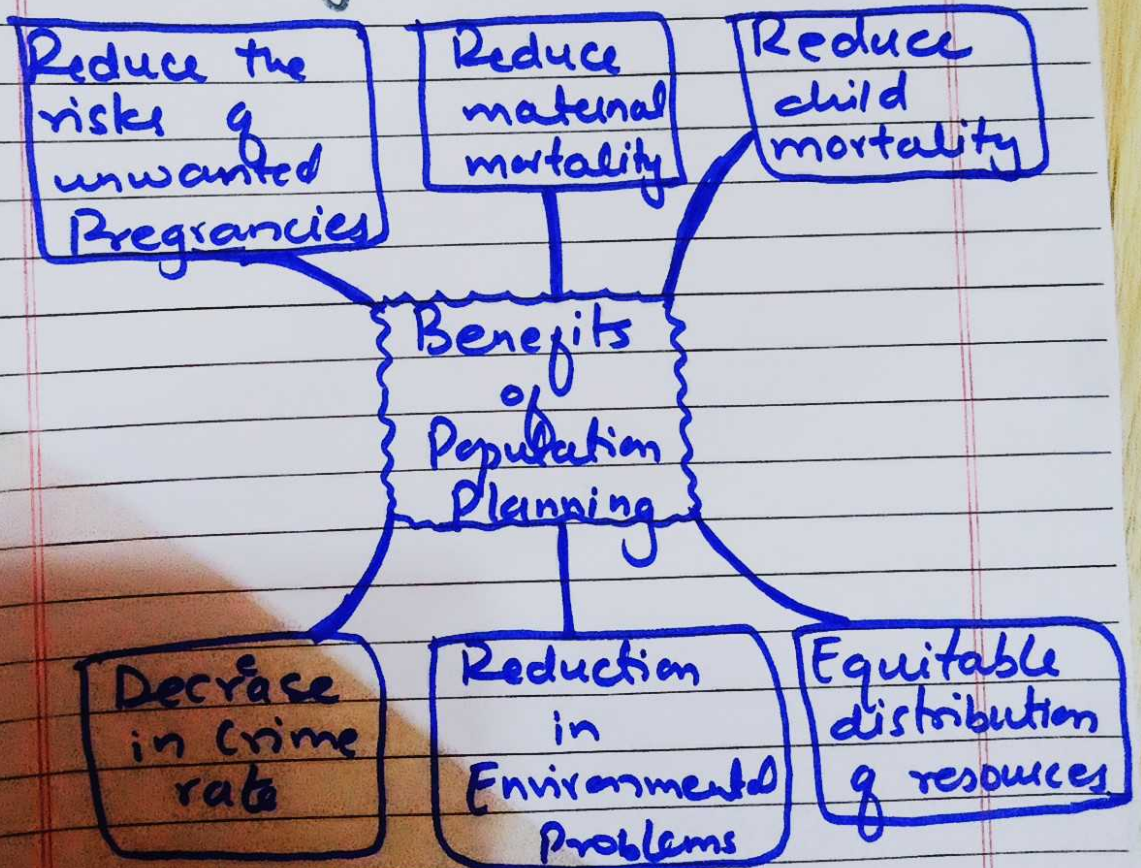 Reduce the
risks of
unwanted
Pregrancies
Reduce
maternal
mortality
Reduce
child
mortality
Benefits
of
Population
Planning
Decrease
in Crime
rate
Reduction
in
Environmental
Problems
Equitable
distribution
of resources